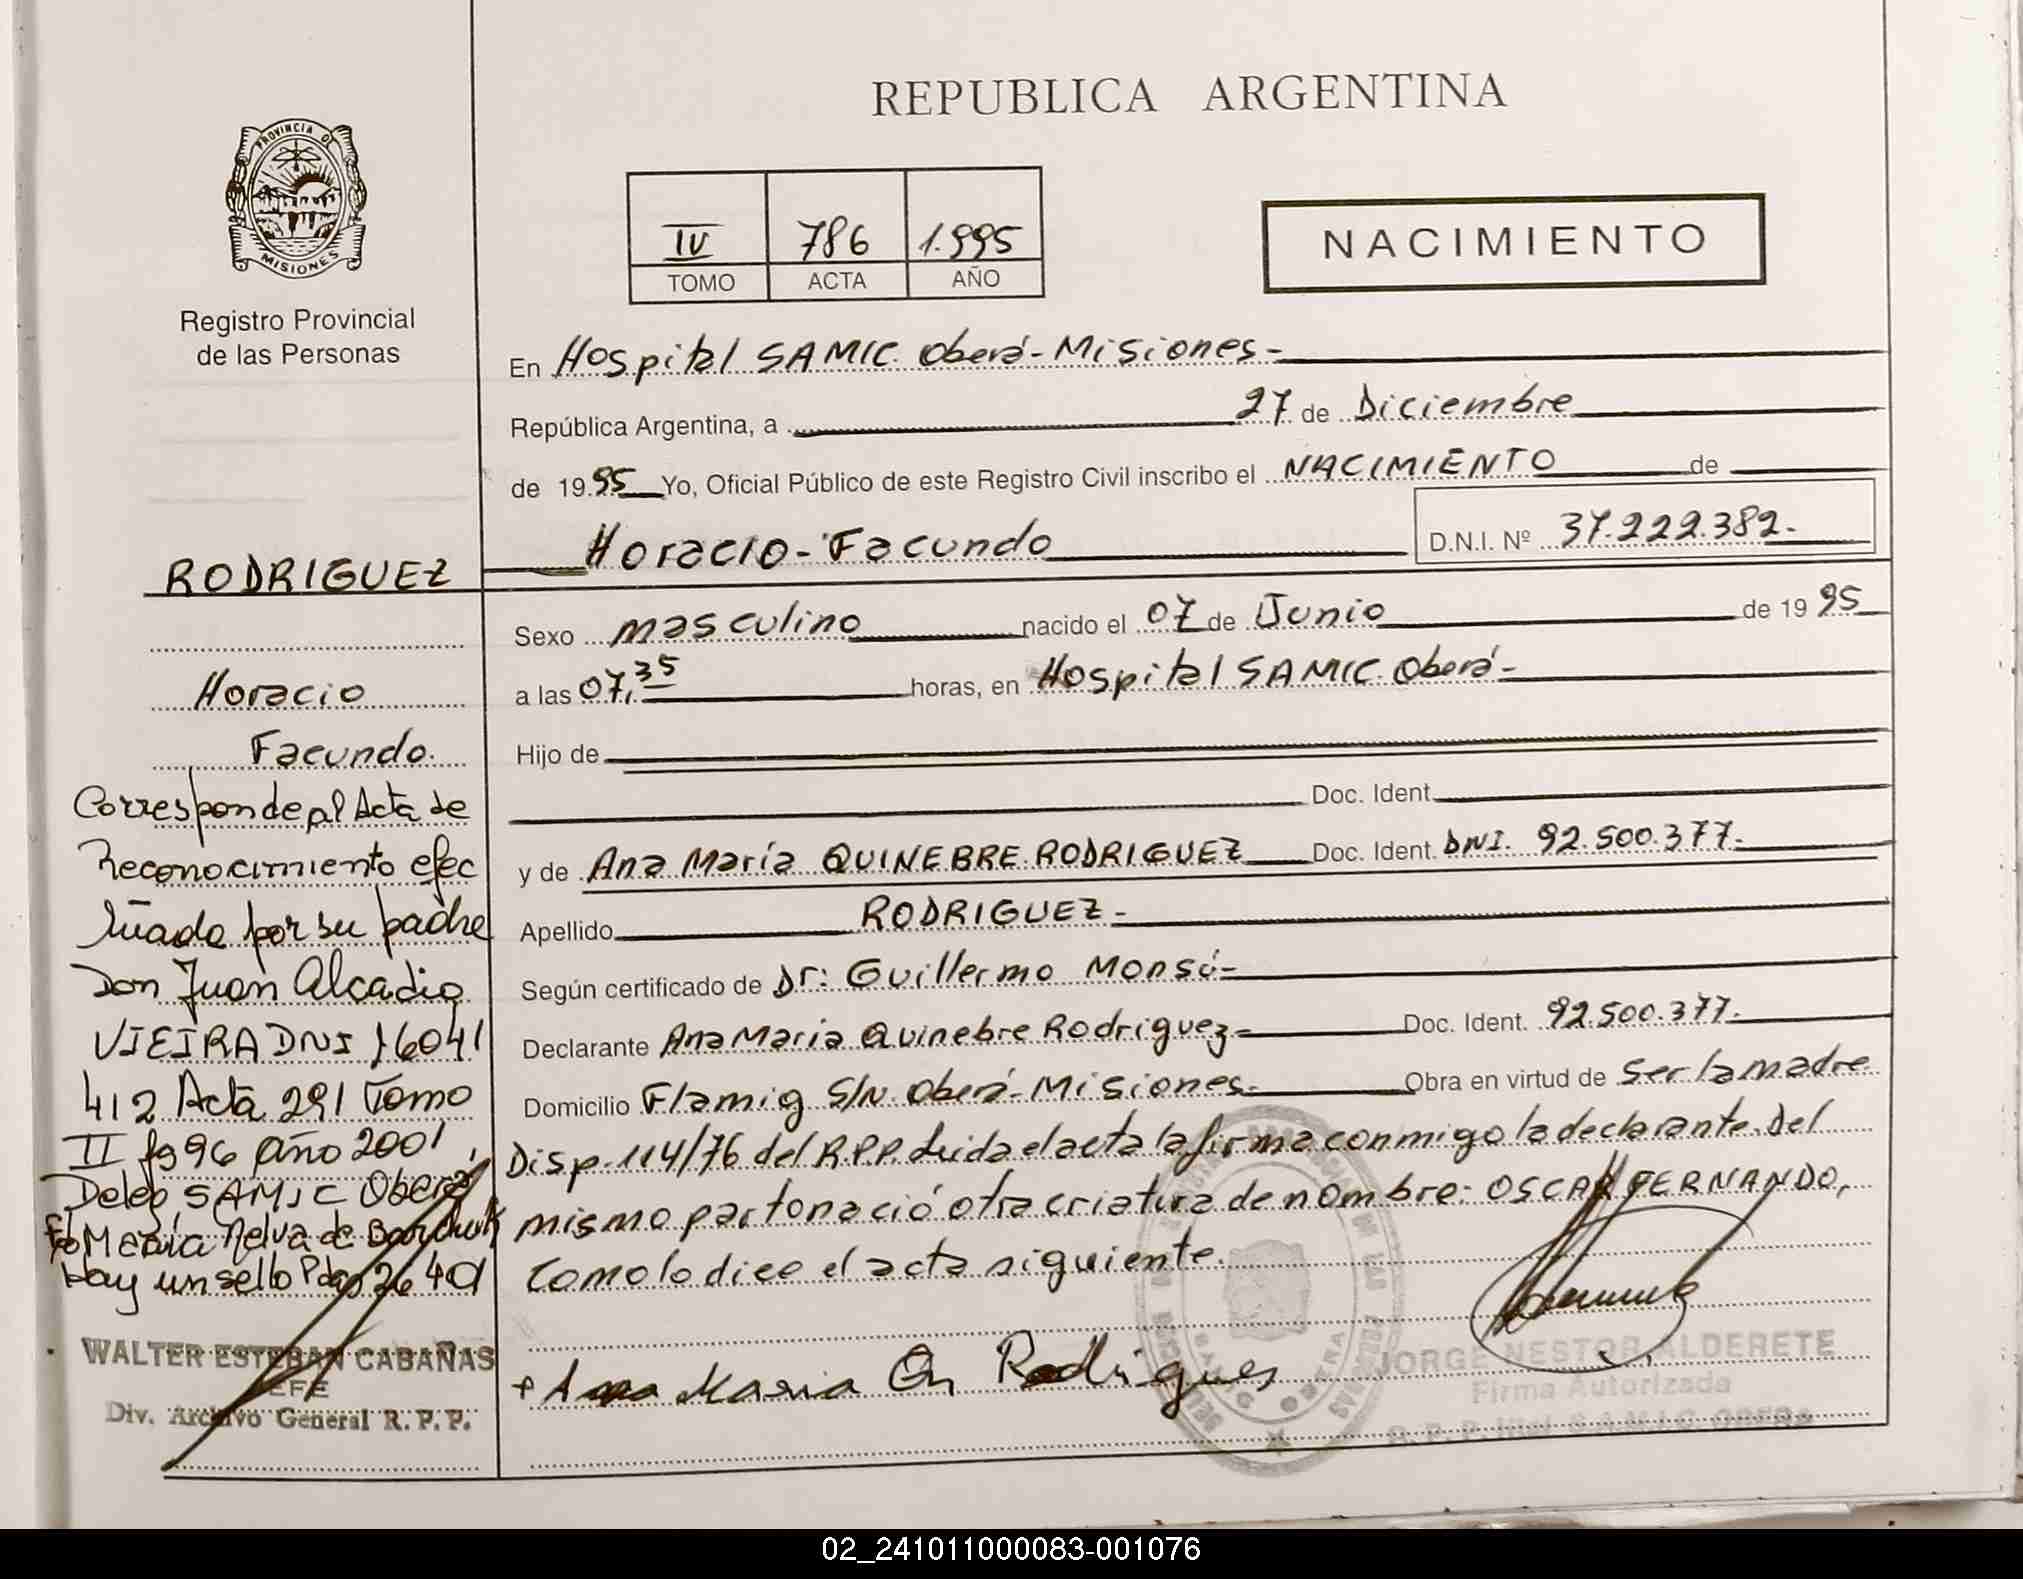 REPUBLICA ARGENTINA
PROVINCIA DE
MISIONES
Registro Provincial
de las Personas
IV 786 1.995
TOMO ACTA AÑO
NACIMIENTO
En Hospital SAMIC. Oberá-Misiones-
República Argentina, a 27 de Diciembre
de 19.95 Yo, Oficial Público de este Registro Civil inscribo el NACIMIENTO de
Horacio-Facundo D.N.I. Nº 37.222.382.-
Sexo masculino nacido el 07 de Junio de 19 95
a las 07,35 horas, en Hospital SAMIC. Oberá-
Hijo de
Doc. Ident.
y de Ana María QUINEBRE RODRIGUEZ Doc. Ident. DNI. 92.500.377.-
Apellido RODRIGUEZ-
Según certificado de Dr: Guillermo Monsó-
Declarante Ana Maria Quinebre Rodriguez- Doc. Ident. 92.500.377.-
Domicilio Flamig S/N. Oberá-Misiones- Obra en virtud de ser la madre
Disp. 114/76 del R.P.P. Leida el acta la firma conmigo la declarante. Del
mismo parto nació otra criatura de nombre: OSCAR FERNANDO,
como lo dice el acta siguiente.
Ana Maria Qn Rodrigues
JORGE NESTOR ALDERETE
Firma Autorizada
R. P. P. S.A.M.I.C. OBERA
RODRIGUEZ
Horacio
Facundo.
Corresponde al Acta de
Reconocimiento efec
tuada por su padre
Don Juan Alcadio
VIEIRA DNI 16041
412 Acta 291 Tomo
II fº 96 año 2001
Deleg SAMIC Oberá
Fdo María Nelva de
Hay un sello Pdas 26401
WALTER ESTEBAN CABAÑAS
JEFE
Div. Archivo General R. P. P.
02_241011000083-001076